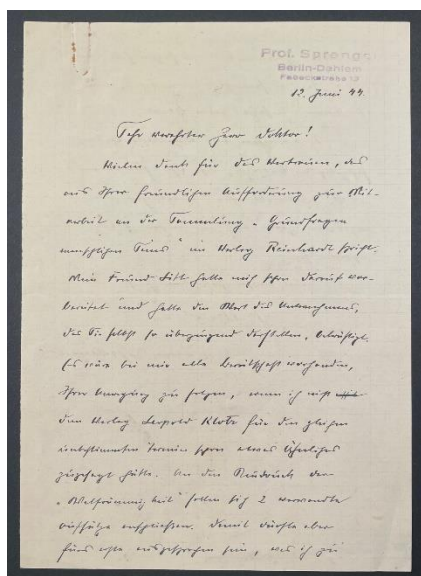 Prof. Spranger
Berlin-Dahlem
Fabeckstraße 13
12. Juni 44.
Sehr verehrter Herr Doktor!
Vielen Dank für das Vertrauen, das
aus Ihrer freundlichen Aufforderung zur Mit-
arbeit an der Sammlung „Grundfragen
menschlichen Seins" im Verlag Reinhardt spricht.
Mein Freund Litt hatte mich schon darauf vor-
bereitet und hatte den Wert des Unternehmens,
das Sie selbst so überzeugend darstellen, bekräftigt.
Es wäre bei mir alle Bereitschaft vorhanden,
Ihrer Anregung zu folgen, wenn ich nicht
dem Verlag Leopold Klotz für den gleichen
unbestimmten Termin schon etwas Ähnliches
zugesagt hätte. An den Neudruck der
„Weltfrömmigkeit" sollen sich 2 verwandte
Aufsätze anschliessen. Damit dürfte aber
fürs erste ausgesprochen sein, was ich zu